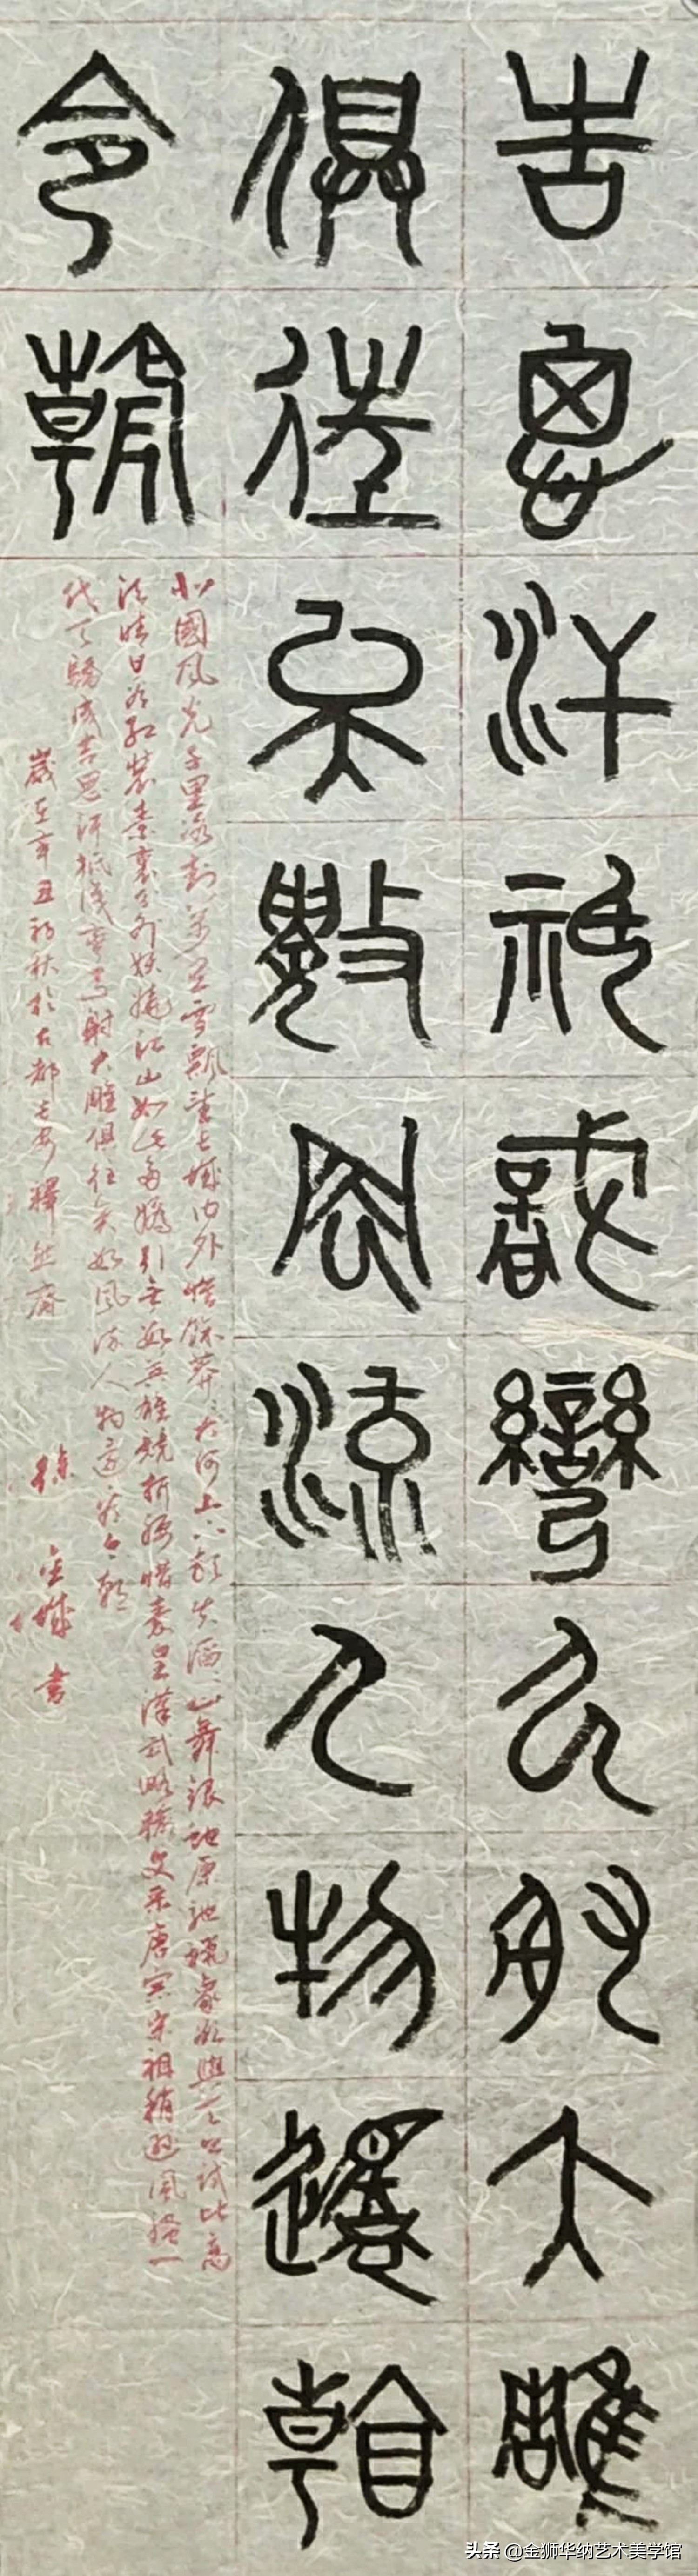 吉思汗祇識彎弓射大雕
俱往矣數風流人物還看
今朝
北國風光千里冰封萬里雪飄望長城內外惟餘莽莽大河上下頓失滔滔山舞銀蛇原馳蠟象欲與天公試比高
須晴日看紅裝素裹分外妖嬈江山如此多嬌引無數英雄競折腰惜秦皇漢武略輸文采唐宗宋祖稍遜風騷一
代天驕成吉思汗祇識彎弓射大雕俱往矣數風流人物還看今朝
歲在辛丑初秋於古都長安釋然齋
書
头条 @金狮华纳艺术美学馆